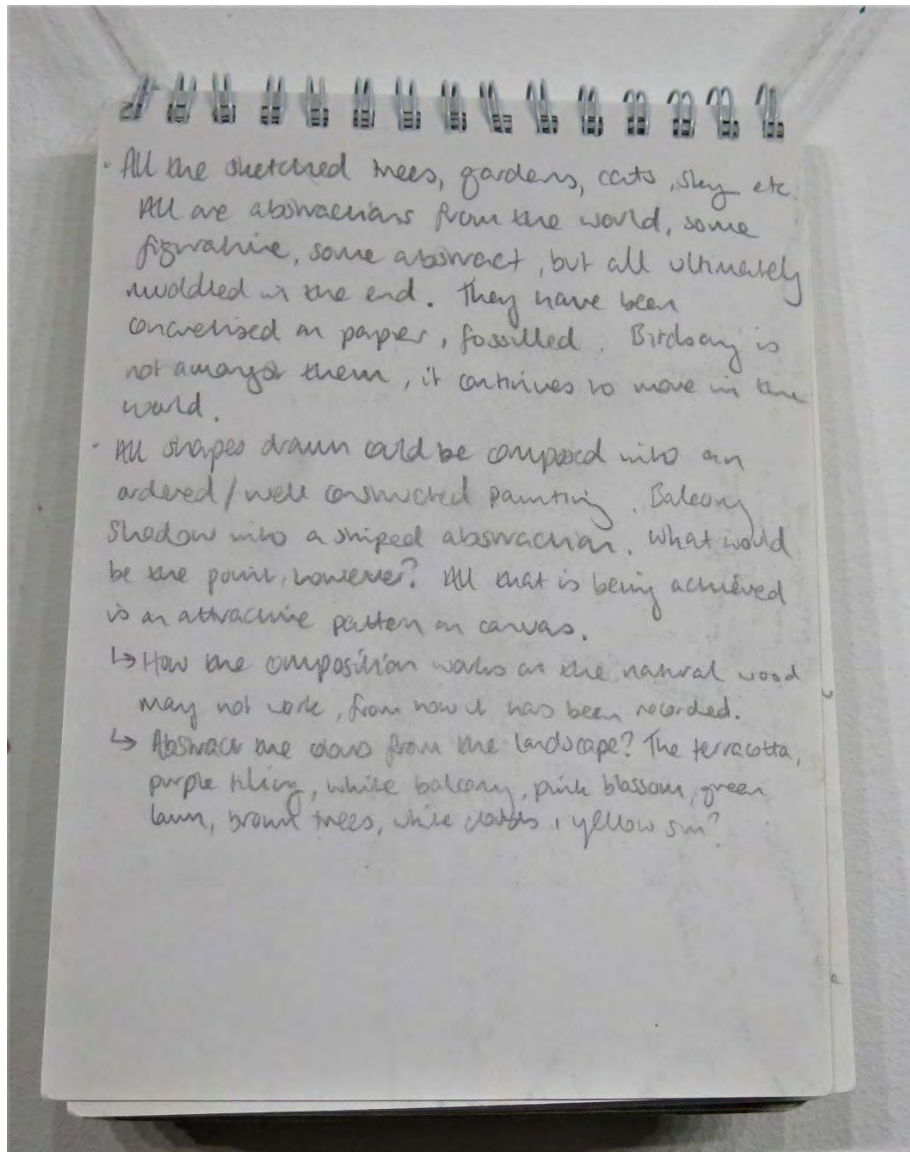 · All the sketched trees, gardens, cats, sky etc.
All are abstractions from the world, some
figurative, some abstract, but all ultimately
muddled in the end. They have been
concretised on paper, fossilled. Birdsong is
not amongst them, it continues to move in the
world.
· All shapes drawn could be composed into an
ordered/well constructed painting. Balcony
shadow into a striped abstraction. What would
be the point, however? All that is being achieved
is an attractive pattern on canvas.
↳ How the composition works on the natural wood
may not work, from how it has been recorded.
↳ Abstract the colours from the landscape? The terracotta,
purple tiling, white balcony, pink blossom, green
lawn, brown trees, white clouds, yellow sun?